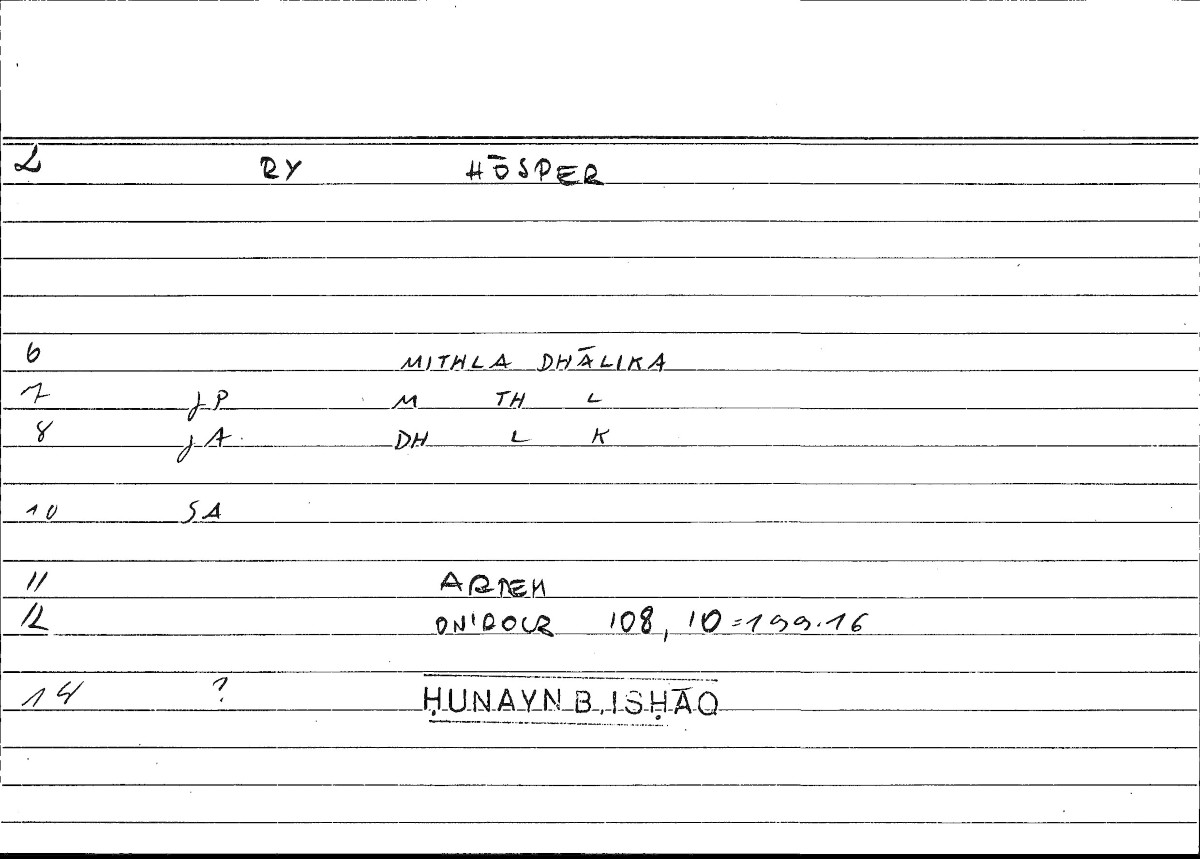 2 RY HŌSPER
6 MITHLA DHĀLIKA
7 JP M TH L
8 JA DH L K
10 SA
11 ARTEM
12 ONIROCR 108, 10=199.16
14 ? ḤUNAYN B. ISḤĀQ